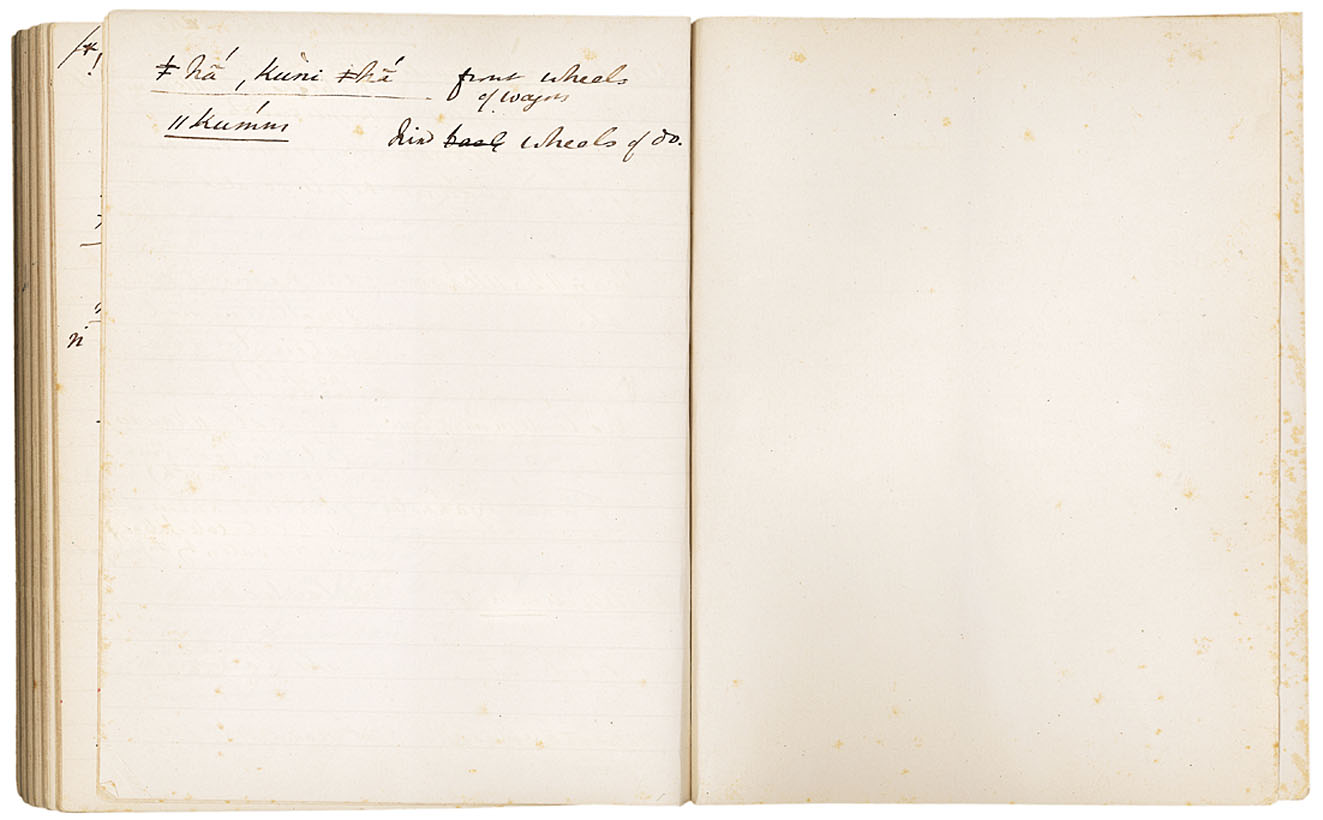 ǂhā́, kuni ǂhā́ front wheels
of wagon
ǁkumm hind back wheels of do.